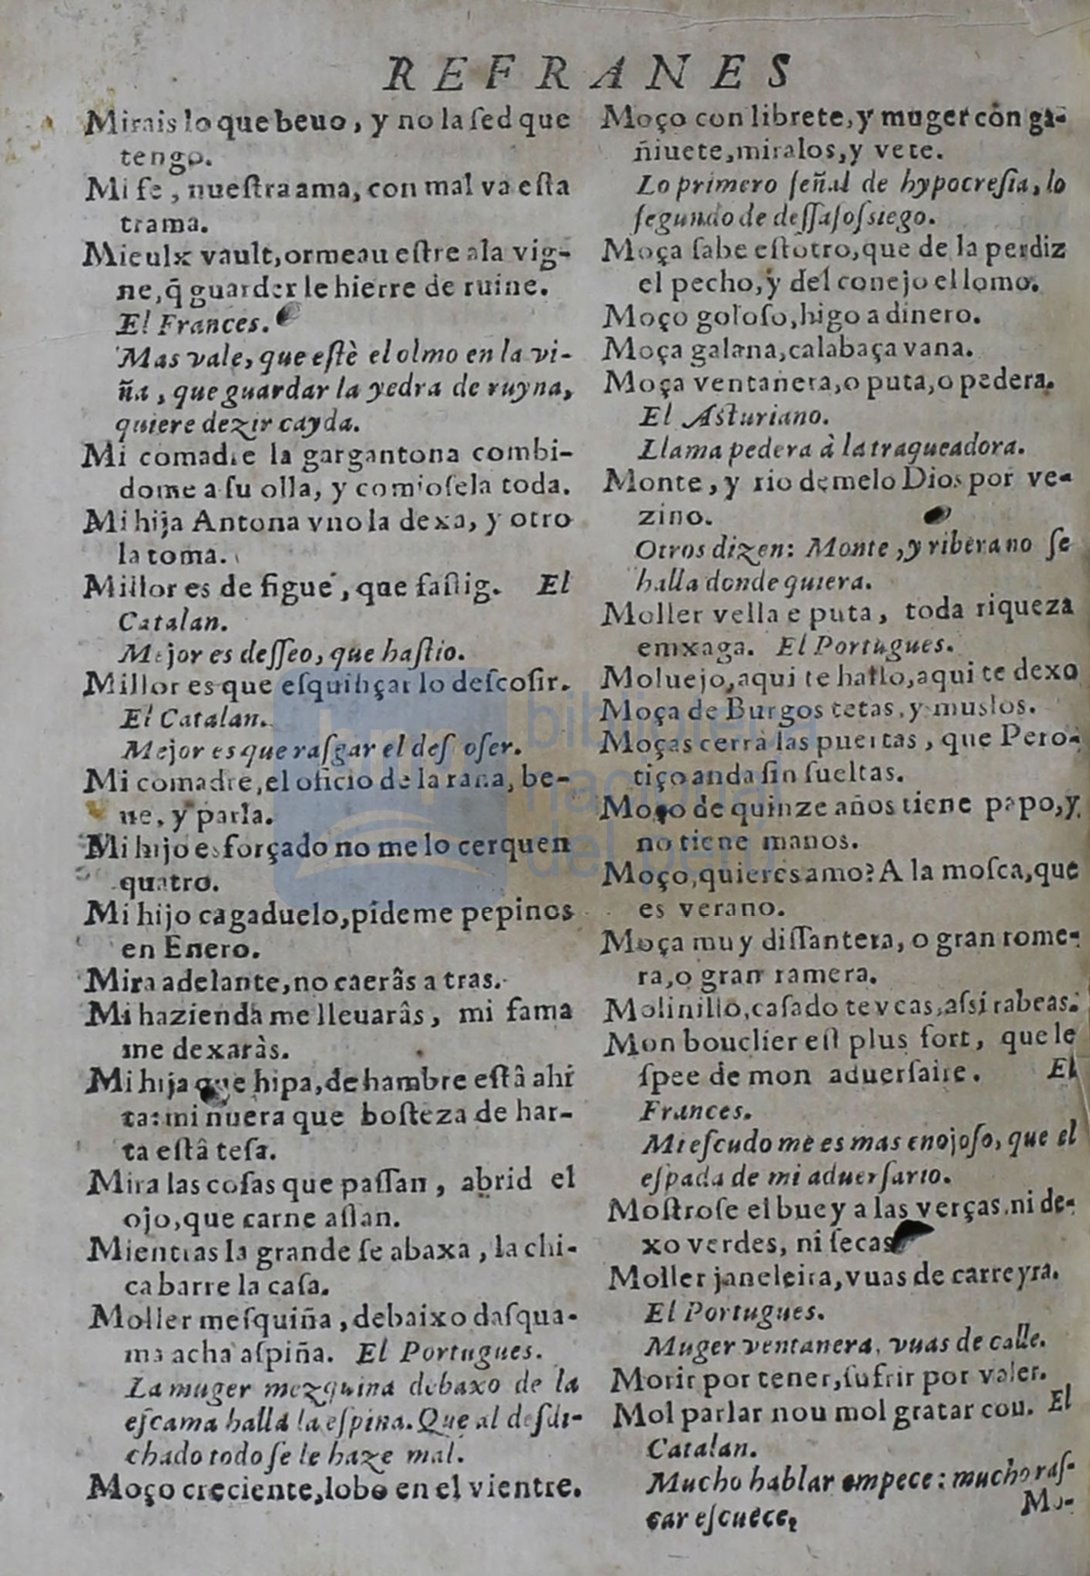 REFRANES
Mirais lo que beuo, y no la ſed que
tengo.
Mi fe, nueſtra ama, con mal va eſta
trama.
Mieulx vault, ormeau eſtre ala vig-
ne, q̃ guarder le hierre de ruine.
El Frances.
Mas vale, que eſtè el olmo en la vi-
ña, que guardar la yedra de ruyna,
quiere dezir cayda.
Mi comadre la gargantona combi-
dome a ſu olla, y comioſela toda.
Mi hija Antona vno la dexa, y otro
la toma.
Millor es de figue, que faſtig. El
Catalan.
Mejor es deſſeo, que haſtio.
Millor es que eſquinçar lo deſcoſir.
El Catalan.
Mejor es que raſgar el deſ oſer.
Mi comadre, el oficio de la rana, be-
ue, y parla.
Mi hijo esforçado no me lo cerquen
quatro.
Mi hijo cagaduelo, pídeme pepinos
en Enero.
Mira adelante, no caerâs a tras.
Mi hazienda me lleuarâs, mi fama
me dexaràs.
Mi hija que hipa, de hambre eſtâ ahí
ta: mi nuera que boſteza de har-
ta eſtâ teſa.
Mira las coſas que paſſan, abrid el
ojo, que carne aſſan.
Mientras la grande ſe abaxa, la chi-
ca barre la caſa.
Moller meſquiña, debaixo daſqua-
ma acha aſpiña. El Portugues.
La muger mezquina debaxo de la
eſcama halla la eſpina. Que al deſdi-
chado todo ſe le haze mal.
Moço creciente, lobo en el vientre.
Moço con librete, y muger con ga-
ñiuete, miralos, y vete.
Lo primero ſeñal de hypocreſia, lo
ſegundo de deſſaſoſsiego.
Moça ſabe eſtotro, que de la perdiz
el pecho, y del conejo el lomo.
Moço goloſo, higo a dinero.
Moça galana, calabaça vana.
Moça ventanera, o puta, o pedera.
El Aſturiano.
Llama pedera à la traqueadora.
Monte, y rio demelo Dios por ve-
zino.
Otros dizen: Monte, y riberano ſe
halla donde quiera.
Moller vella e puta, toda riqueza
emxaga. El Portugues.
Moluejo, aqui te hallo, aqui te dexo
Moça de Burgos tetas, y muslos.
Moças cerrà las puertas, que Pero-
tiço anda ſin ſueltas.
Moço de quinze años tiene papo, y
no tiene manos.
Moço, quieres amo? A la moſca, que
es verano.
Moça muy diſſantera, o gran rome-
ra, o gran ramera.
Molinillo, caſado te vcas, aſsi rabeas.
Mon bouclier eſt plus fort, que le
ſpee de mon aduerſaire. El
Frances.
Mi eſcudo me es mas enojoſo, que el
eſpada de mi aduerſario.
Moſtroſe el buey a las verças, ni de-
xo verdes, ni ſecas
Moller janeleira, vuas de carreyra.
El Portugues.
Muger ventanera, vuas de calle.
Morir por tener, ſufrir por valer.
Mol parlar nou mol gratar cou. El
Catalan.
Mucho hablar empece: mucho raſ-
car eſcuece,
Mo-
biblioteca
nacional
del perú